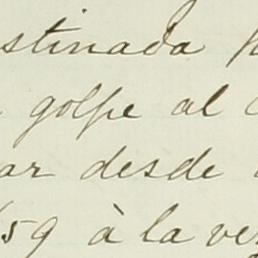 stinada
golpe al
ar desde
59 à la ver